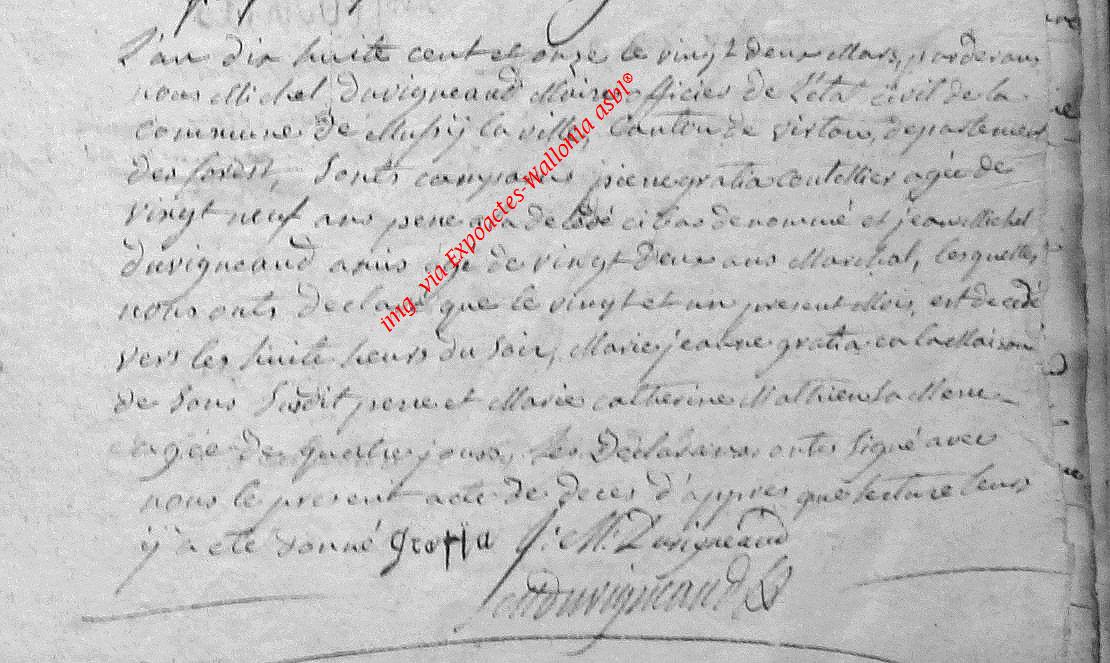 L'an dix huite cent et onze le vingt deux Mars, pardevans
nous Michel Duvigneaud Maire officier de L'état civil de la
commune de Mussÿ la ville, Canton de virton, departement
des forest, Sonts comparus pierre gratia coutellier agée de
vingt neuf ans pere a la de cédé ci bas denommé et jean Michel
duvigneaud amis agé de vingt deux ans Marchal, lesquelles
nous onts declaré que le vingt et un present Mois, est decedé
vers les huite heurs du soir, Marie jeanne gratia en la Maison
de Sons Susdit pere et Marie catherine Mathieu sa Mere
agée de quatre jours, les Déclarans onts Signé avec
nous le present acte de deces d'appres que lecture leurs
ÿ a ete donné gratia J: M: Duvigneaud
Duvigneaud
img. via Expoactes-Wallonia asbl®